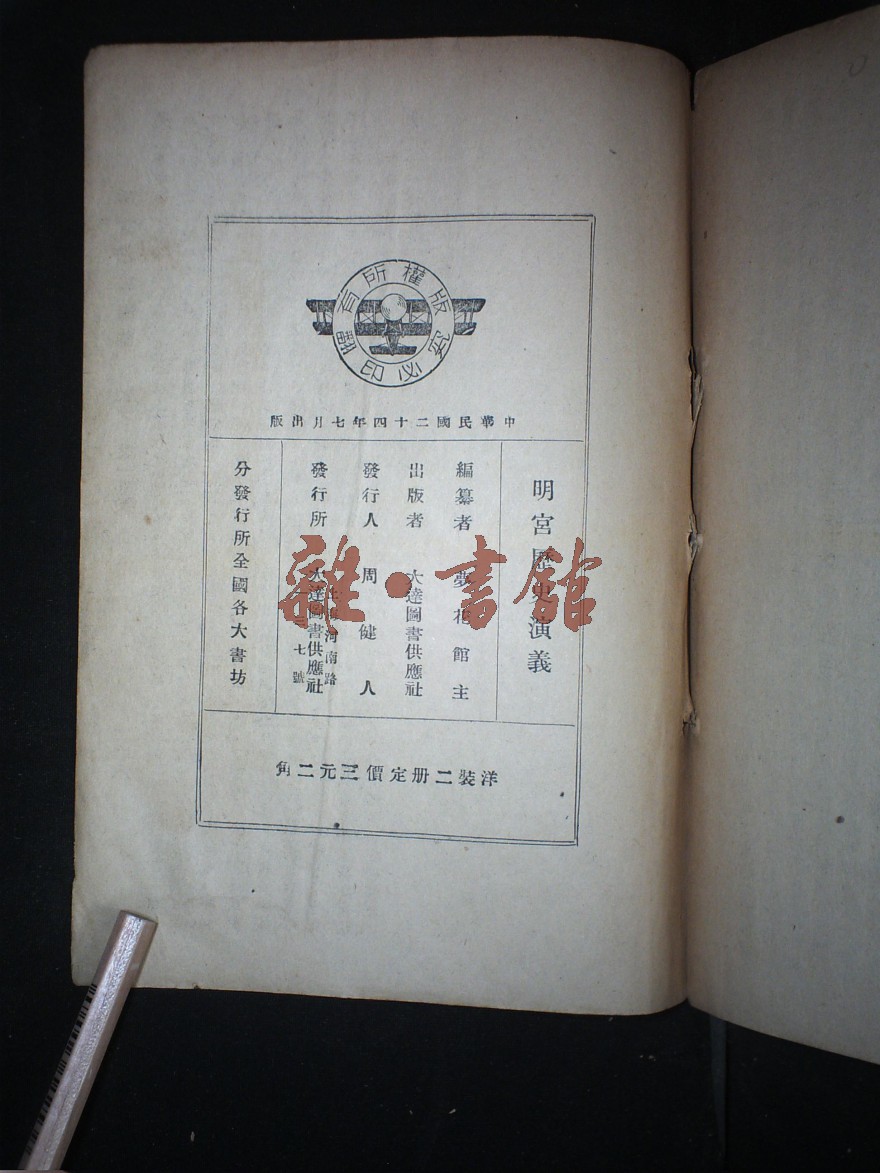 版權所有
翻印必究
中華民國二十四年七月出版
明宮歷史演義
編纂者 夢花館主
出版者 大達圖書供應社
發行人 周健人
發行所 大達圖書供應社
河南路
七號
分發行所全國各大書坊
洋裝二册定價三元二角
雜·書館